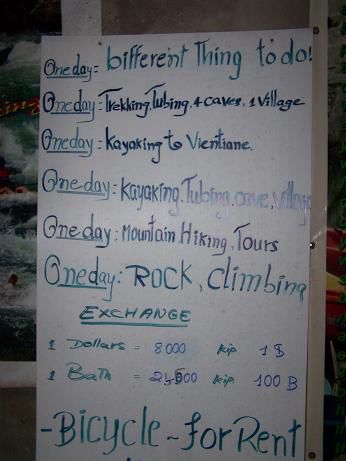 One day:= Different Thing to do!
One day: Trekking, Tubing, 4 caves, 1 Village
One day: Kayaking to Vientiane.
One day: Kayaking, Tubing, cave, village
One day: Mountain Hiking, Tours
One day: ROCK, climbing
EXCHANGE
1 Dollars = 8000 kip 1 $
1 Bath = kip 100 B
- BICYCLE ~ for Rent